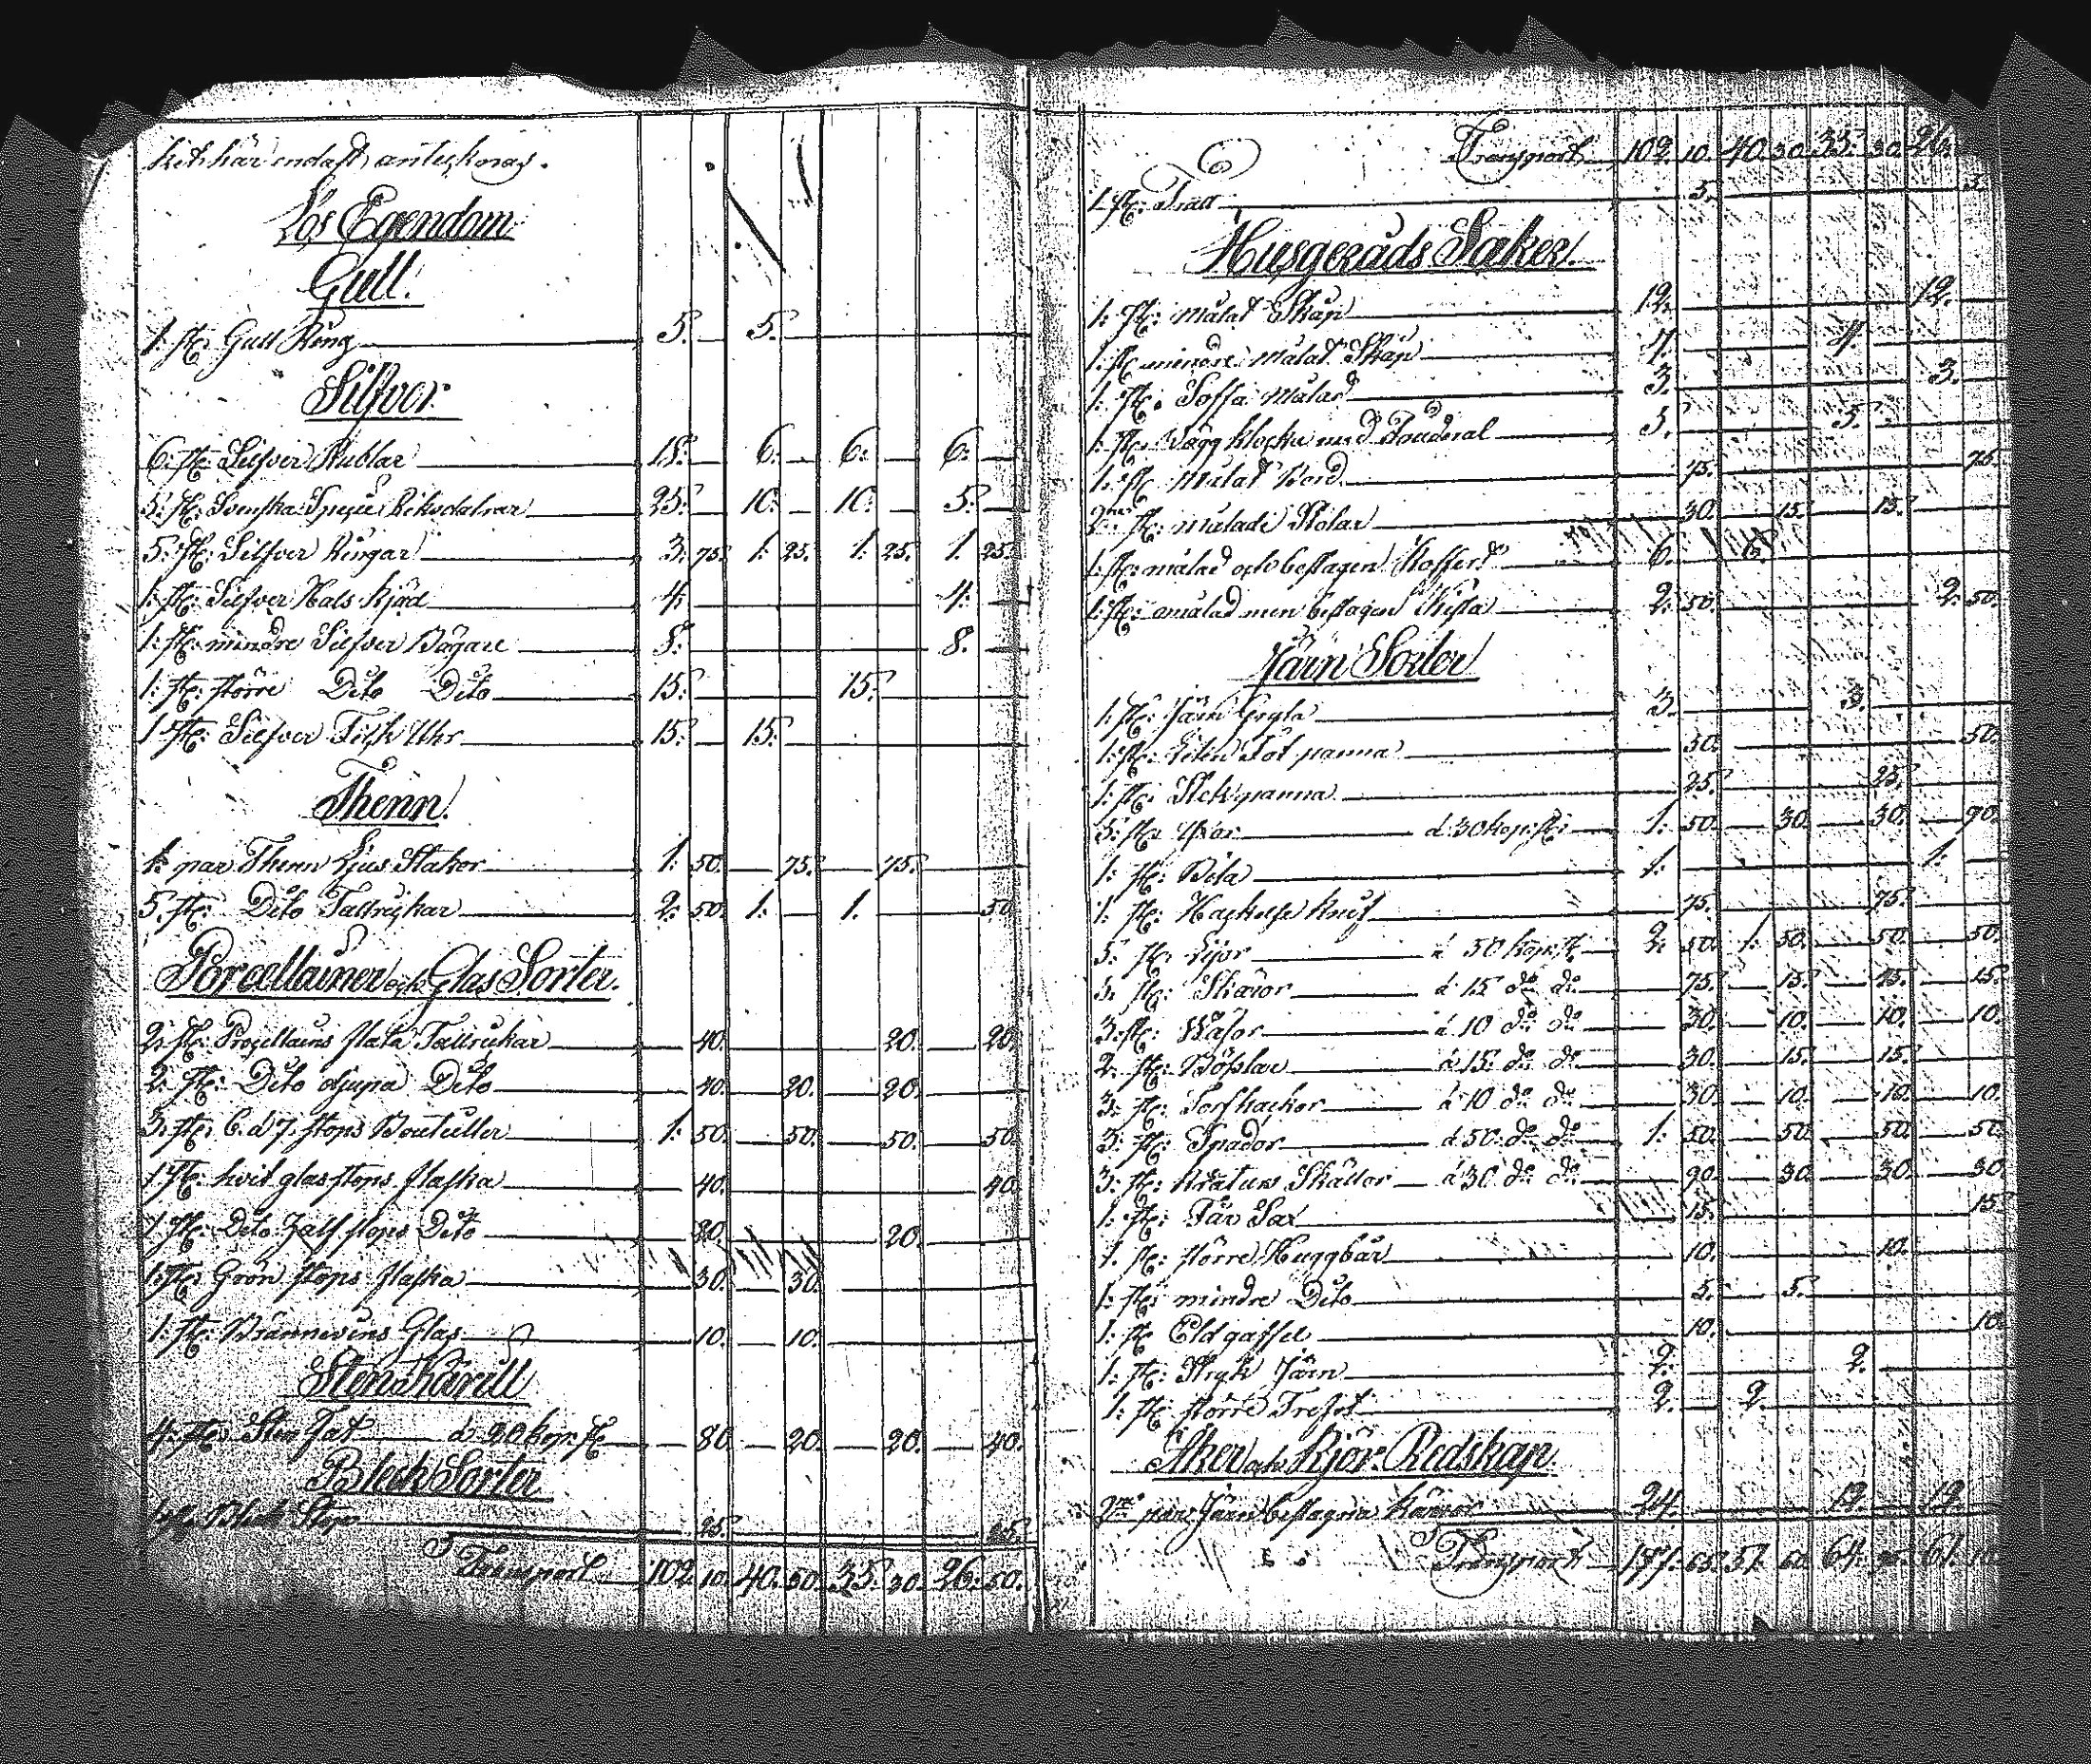 ket här endast antecknas.
Lös Egendom
Gull.
1: st: Gull Ring 5. 5.
Silfver
6: st: Silfver Rublar 18. 6. 6. 6.
5: st: Svenska Specie Riksdalrar 25. 10. 10. 5.
5: st: Silfver Ringar 3. 75. 1. 25. 1. 25. 1. 25.
1: st: Silfver Hals Kjäd 4. 4.
1: st: mindre Silfver Bägare 8. 8.
1: st: större Dito Dito 15. 15.
1: st: Silfver Fick Uhr 15. 15.
Thenn
1: par Thenn Ljus Stakar 1. 50. 75. 75.
5: st: Dito Tallrickar 2. 50. 1. 1. 50
Porcellainer och Glas Sorter.
2: st: Procellains flata Tallrickar 40. 20. 20.
2: st: Dito djupa Dito 40. 20. 20.
3: st: 6. à 7. stops Bouteiller 1. 50. 50. 50. 50
1: st: hvit glas stops flaska 40. 40.
1: st: Dito half stops Dito 20. 20.
1: st: Grön stops flaska 30. 30.
1: st: Brännevins Glas 10. 10.
Stenkärill
4: st: Sten Fat à 20 kop: st 80 20. 20. 40.
Bleck Sorter
1: st: Bleck Stop 25. 25.
Transport 102. 10. 40. 30. 35. 30. 26. 50.
Transport 102. 10. 40. 30. 35. 30. 26.
1 st: 5. 5.
Husgeråds Saker.
1: st: målat Skåp 12. 12.
1: st mindre målat Skåp 4. 4.
1: st: Soffa målad 3. 3.
1: st: Vägg klocka med Fouderal 5. 5.
1: st: målat Bord 75. 75.
2ne st: målade Stolar 30. 15. 15.
1: st: målad och beslagen Koffert 6. 6.
1: st: omålad men beslagen Kista 2. 50. 2. 50.
Järn Sorter
1: st: Järn Gryta 3. 3.
1: st: liten Fot panna 50. 50.
1: st: Stekpanna 25. 25.
5: st: Yxor à 30 kop: st: 1. 50. 30. 30. 90.
1: st: Bila 1. 1.
1: st: Hackelse knif 75. 75.
5: st: Lijor à 50 kop: st 2. 50. 1. 50. 50. 50.
5: st: Skäror à 15 do do 75. 15. 45. 15.
3: st: à 10 do do 30. 10. 10. 10.
2: st: Bösslar à 15 do do 30. 15. 15.
3: st: Torfhackor à 10 do do 30. 10. 10. 10.
3: st: Spador à 50 do do 1. 50. 50. 50. 50
3: st: Kräturs Skällor à 30 do do 90. 30. 30. 30
1: st: Får Sax 15. 15
1. st: större Huggbår 10. 10.
1: st: mindre Dito 5. 5.
1: st Eldgaffel 10. 10
1: st: Stryk Järn 2. 2.
1: st: större Trefot 2. 2
Åker och Kjör-Redskap.
2ne par Järn beslagna Kärror 24. 12. 12.
Transport 177. 65. 51. 60. 64. 61. 10.